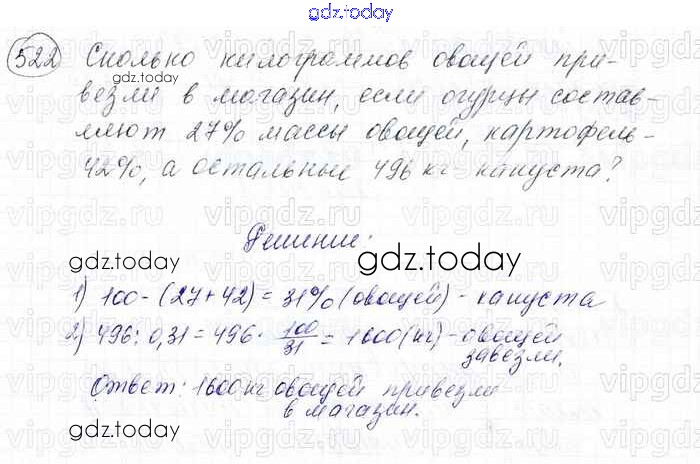 gdz.today
522 Сколько килограммов овощей при-
везли в магазин, если огурцы состав-
ляют 27% массы овощей, картофель-
42%, а остальные 496 кг капуста?
Решение:
1) 100-(27+42)=31%(овощей)- капуста
2) 496:0,31=496·100/31=1600(кг)-овощей
завезли.
Ответ: 1600 кг овощей привезли
в магазин.
gdz.today
gdz.today
gdz.today
gdz.today
gdz.today
vipgdz.ru